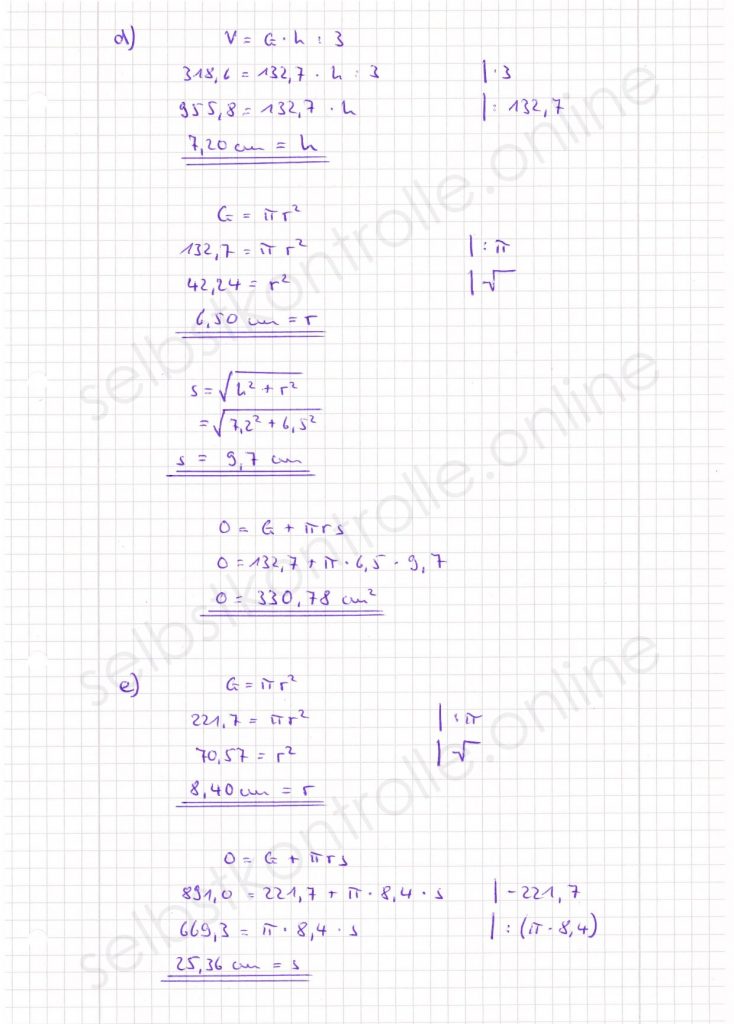 d) V = G · h : 3
318,6 = 132,7 · h : 3 | · 3
955,8 = 132,7 · h | : 132,7
7,20 cm = h
G = π r²
132,7 = π r² | : π
42,24 = r² | √
6,50 cm = r
s = √(h² + r²)
= √(7,2² + 6,5²)
s = 9,7 cm
O = G + π r s
O = 132,7 + π · 6,5 · 9,7
O = 330,78 cm²
e) G = π r²
221,7 = π r² | : π
70,57 = r² | √
8,40 cm = r
O = G + π r s
891,0 = 221,7 + π · 8,4 · s | - 221,7
669,3 = π · 8,4 · s | : (π · 8,4)
25,36 cm = s
selbstkontrolle.online
selbstkontrolle.online
selbstkontrolle.online